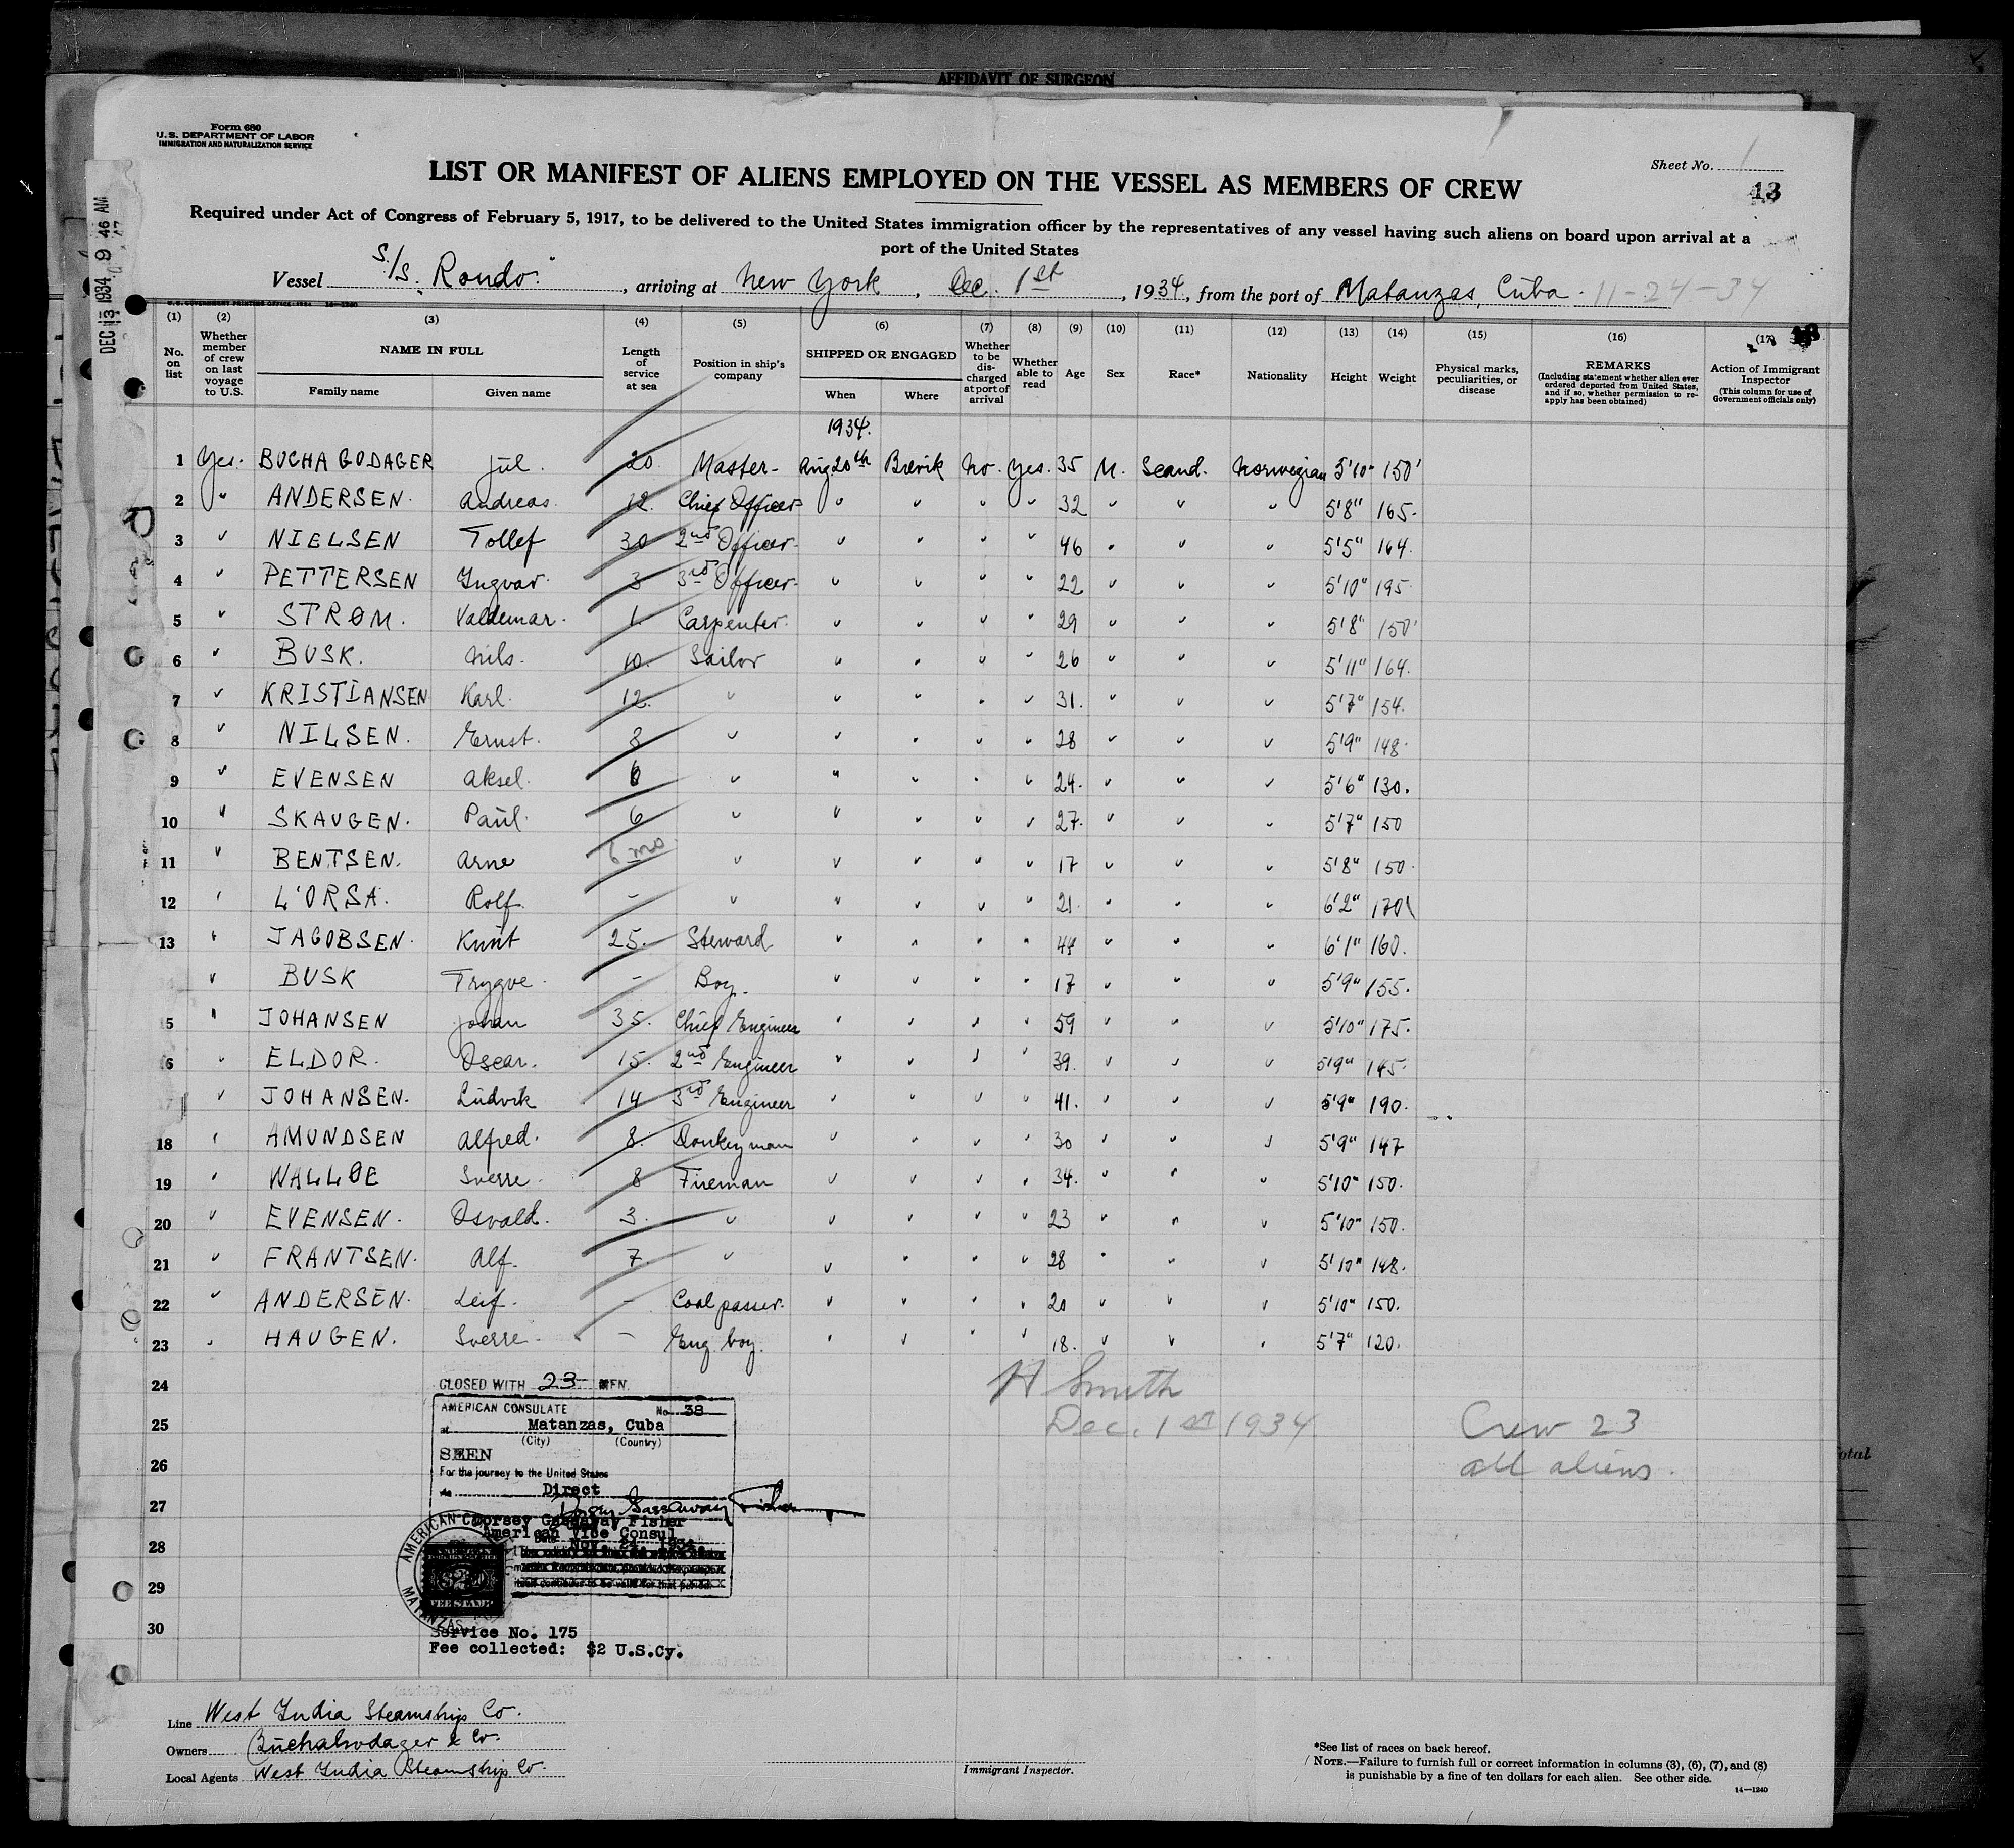 AFFIDAVIT OF SURGEON
Form 680
U.S. DEPARTMENT OF LABOR
IMMIGRATION AND NATURALIZATION SERVICE
Sheet No. 1
13
LIST OR MANIFEST OF ALIENS EMPLOYED ON THE VESSEL AS MEMBERS OF CREW
Required under Act of Congress of February 5, 1917, to be delivered to the United States immigration officer by the representatives of any vessel having such aliens on board upon arrival at a
port of the United States
Vessel S/S. "Rondo." , arriving at New York , Dec. 1st , 1934, from the port of Matanzas, Cuba. 11-24-34
DEC 13 1934 9 46 AM
U.S. GOVERNMENT PRINTING OFFICE: 1934 14-1240
(1) (2) (3) (4) (5) (6) (7) (8) (9) (10) (11) (12) (13) (14) (15) (16) (17)
No. on list Whether member of crew on last voyage to U.S. NAME IN FULL Family name Given name Length of service at sea Position in ship's company SHIPPED OR ENGAGED When Where Whether to be discharged at port of arrival Whether able to read Age Sex Race* Nationality Height Weight Physical marks, peculiarities, or disease REMARKS (Including statement whether alien ever ordered deported from United States, and if so, whether permission to re-apply has been obtained) Action of Immigrant Inspector (This column for use of Government officials only)
1934.
1 Yes. BUCHA GODAGER Jul. 20. Master- Aug 20th Brevik No. Yes. 35 M. Scand. Norwegian 5'10" 150
2 " ANDERSEN. Andreas. 12. Chief Officer- " " " " 32 " " " 5'8" 165.
3 " NIELSEN Tollef 30 2nd Officer- " " " " 46 " " " 5'5" 164.
4 " PETTERSEN Yngvar. 3 3rd Officer- " " " " 22 " " " 5'10" 195.
5 " STRØM. Valdemar. 1. Carpenter. " " " " 29 " " " 5'8" 150
6 " BUSK. Nils. 10. Sailor " " " " 26 " " " 5'11" 164.
7 " KRISTIANSEN Karl. 12. " " " " " 31. " " " 5'7" 154.
8 " NILSEN. Ernst. 8 " " " " " 28 " " " 5'9" 148.
9 " EVENSEN Aksel. 6 " " " " " 24. " " " 5'6" 130.
10 " SKAUGEN. Paul. 6 " " " " " 27. " " " 5'7" 150
11 " BENTSEN. Arne 6 mo " " " " " 17 " " " 5'8" 150.
12 " L'ORSA. Rolf. - " " " " " 21. " " " 6'2" 170
13 " JACOBSEN. Knut 25. Steward " " " " 44 " " " 6'1" 160.
" BUSK Trygve - Boy. " " " " 17 " " " 5'9" 155.
15 " JOHANSEN Johan 35. Chief Engineer " " " " 59 " " " 5'10" 175.
16 " ELDOR. Oscar. 15. 2nd Engineer " " " " 39. " " " 5'9" 145.
17 " JOHANSEN. Ludvik 14 3rd Engineer " " " " 41. " " " 5'9" 190.
18 " AMUNDSEN Alfred. 8. Donkeyman " " " " 30 " " " 5'9" 147
19 " WALLØE Sverre. 8 Fireman " " " " 34. " " " 5'10" 150.
20 " EVENSEN. Osvald. 3. " " " " " 23 " " " 5'10" 150.
21 " FRANTSEN. Alf. 7. " " " " " 28 " " " 5'10" 148.
22 " ANDERSEN. Leif. - Coal passer. " " " " 20 " " " 5'10" 150.
23 " HAUGEN. Sverre. - Eng. boy. " " " " 18. " " " 5'7" 120.
24
25
26
27
28
29
30
CLOSED WITH 23 MEN.
AMERICAN CONSULATE No. 38
at Matanzas, Cuba
(City) (Country)
SEEN
For the journey to the United States
Direct
Dorsey Gassaway Fisher
Dorsey Gassaway Fisher
American Vice Consul
Nov. 24, 1934
AMERICAN CO
MATANZAS
$2
FEE STAMP
Service No. 175
Fee collected: $2 U.S.Cy.
H Smith
Dec. 1st 1934
Crew 23
all aliens.
otal
Line West India Steamship Co.
Owners Buchagodager & Co.
Local Agents West India Steamship Co.
Immigrant Inspector.
*See list of races on back hereof.
NOTE.—Failure to furnish full or correct information in columns (3), (6), (7), and (8)
is punishable by a fine of ten dollars for each alien. See other side.
14—1240